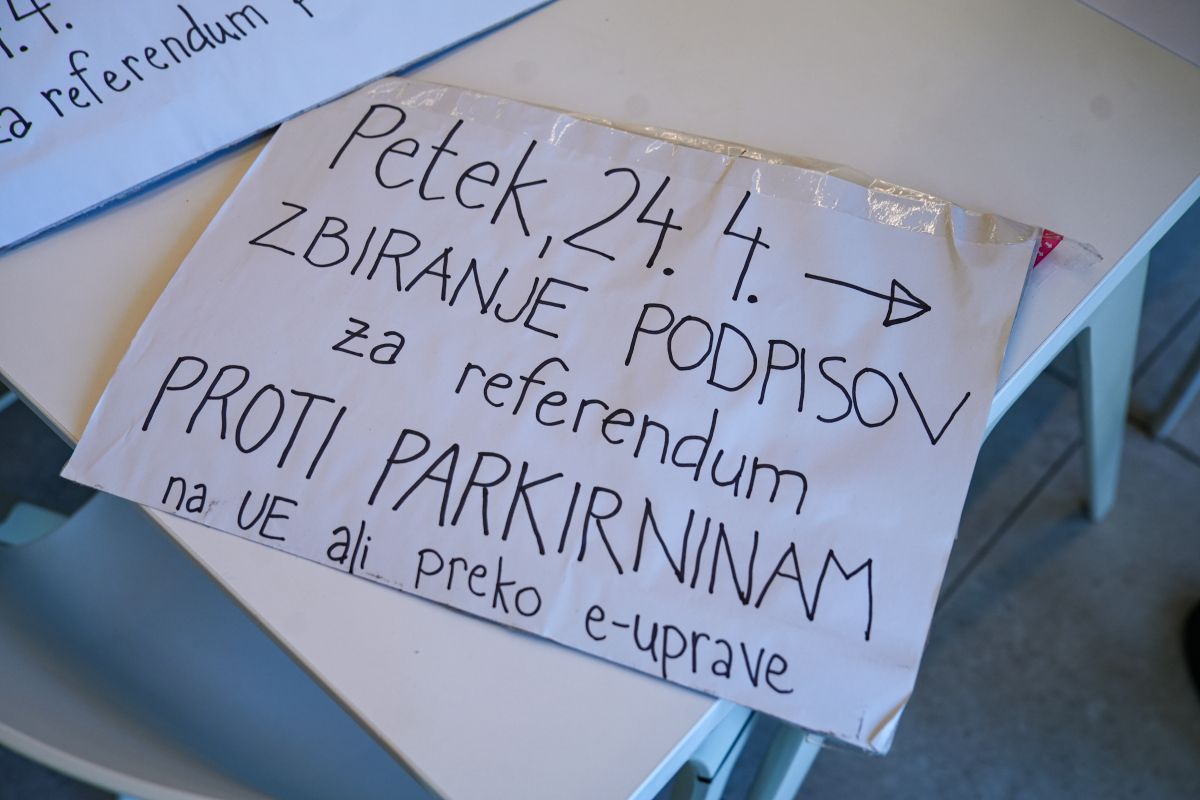 4.
za referendum
Petek, 24. 4. →
ZBIRANJE PODPISOV
za referendum
PROTI PARKIRNINAM
na UE ali preko e-uprave